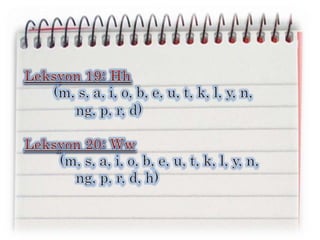 Leksyon 19: Hh
(m, s, a, i, o, b, e, u, t, k, l, y, n,
ng, p, r, d)
Leksyon 20: Ww
(m, s, a, i, o, b, e, u, t, k, l, y, n,
ng, p, r, d, h)